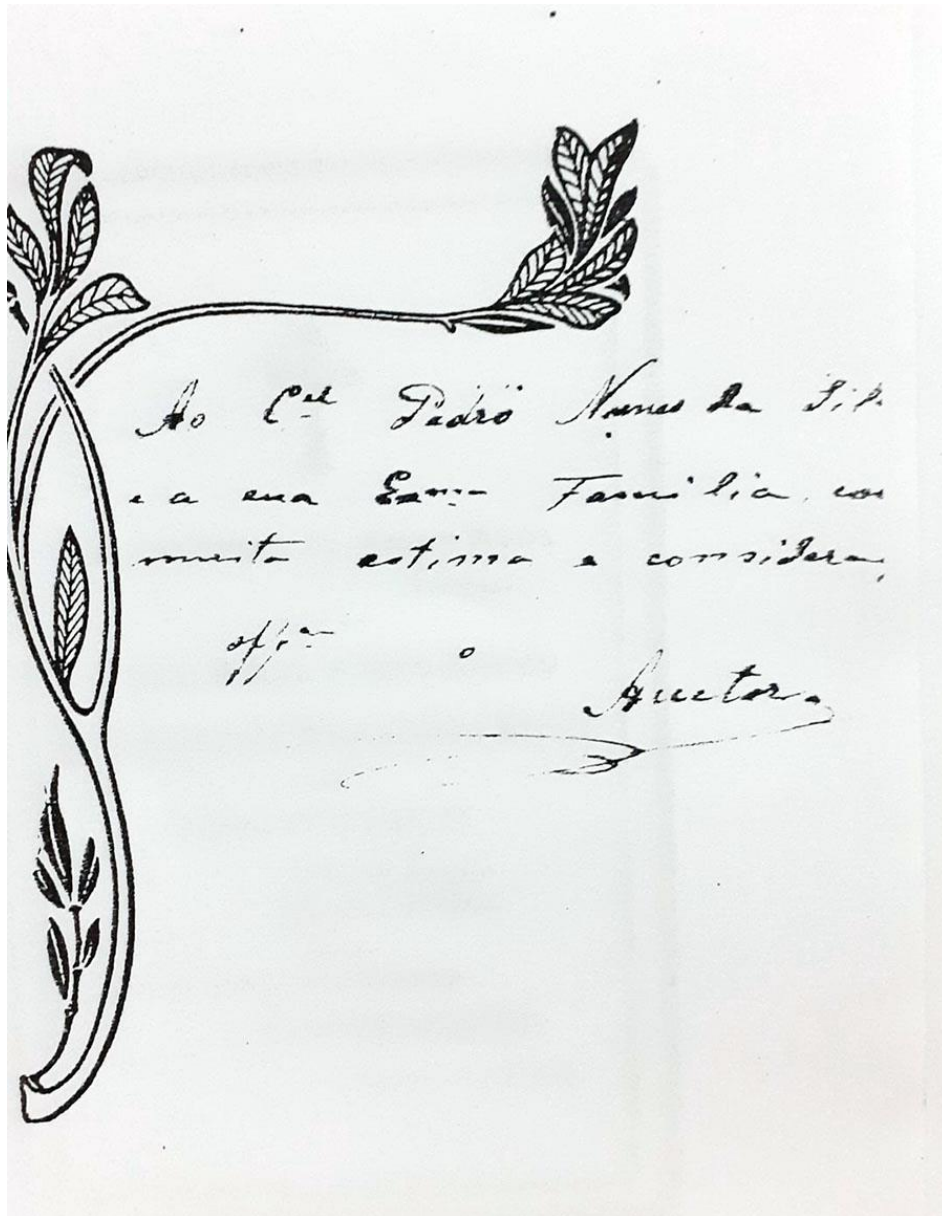 Ao Cel Pedro Nunes da Sil
e a sua Exma Familia, co
muita estima e considera
offce o
Auctor